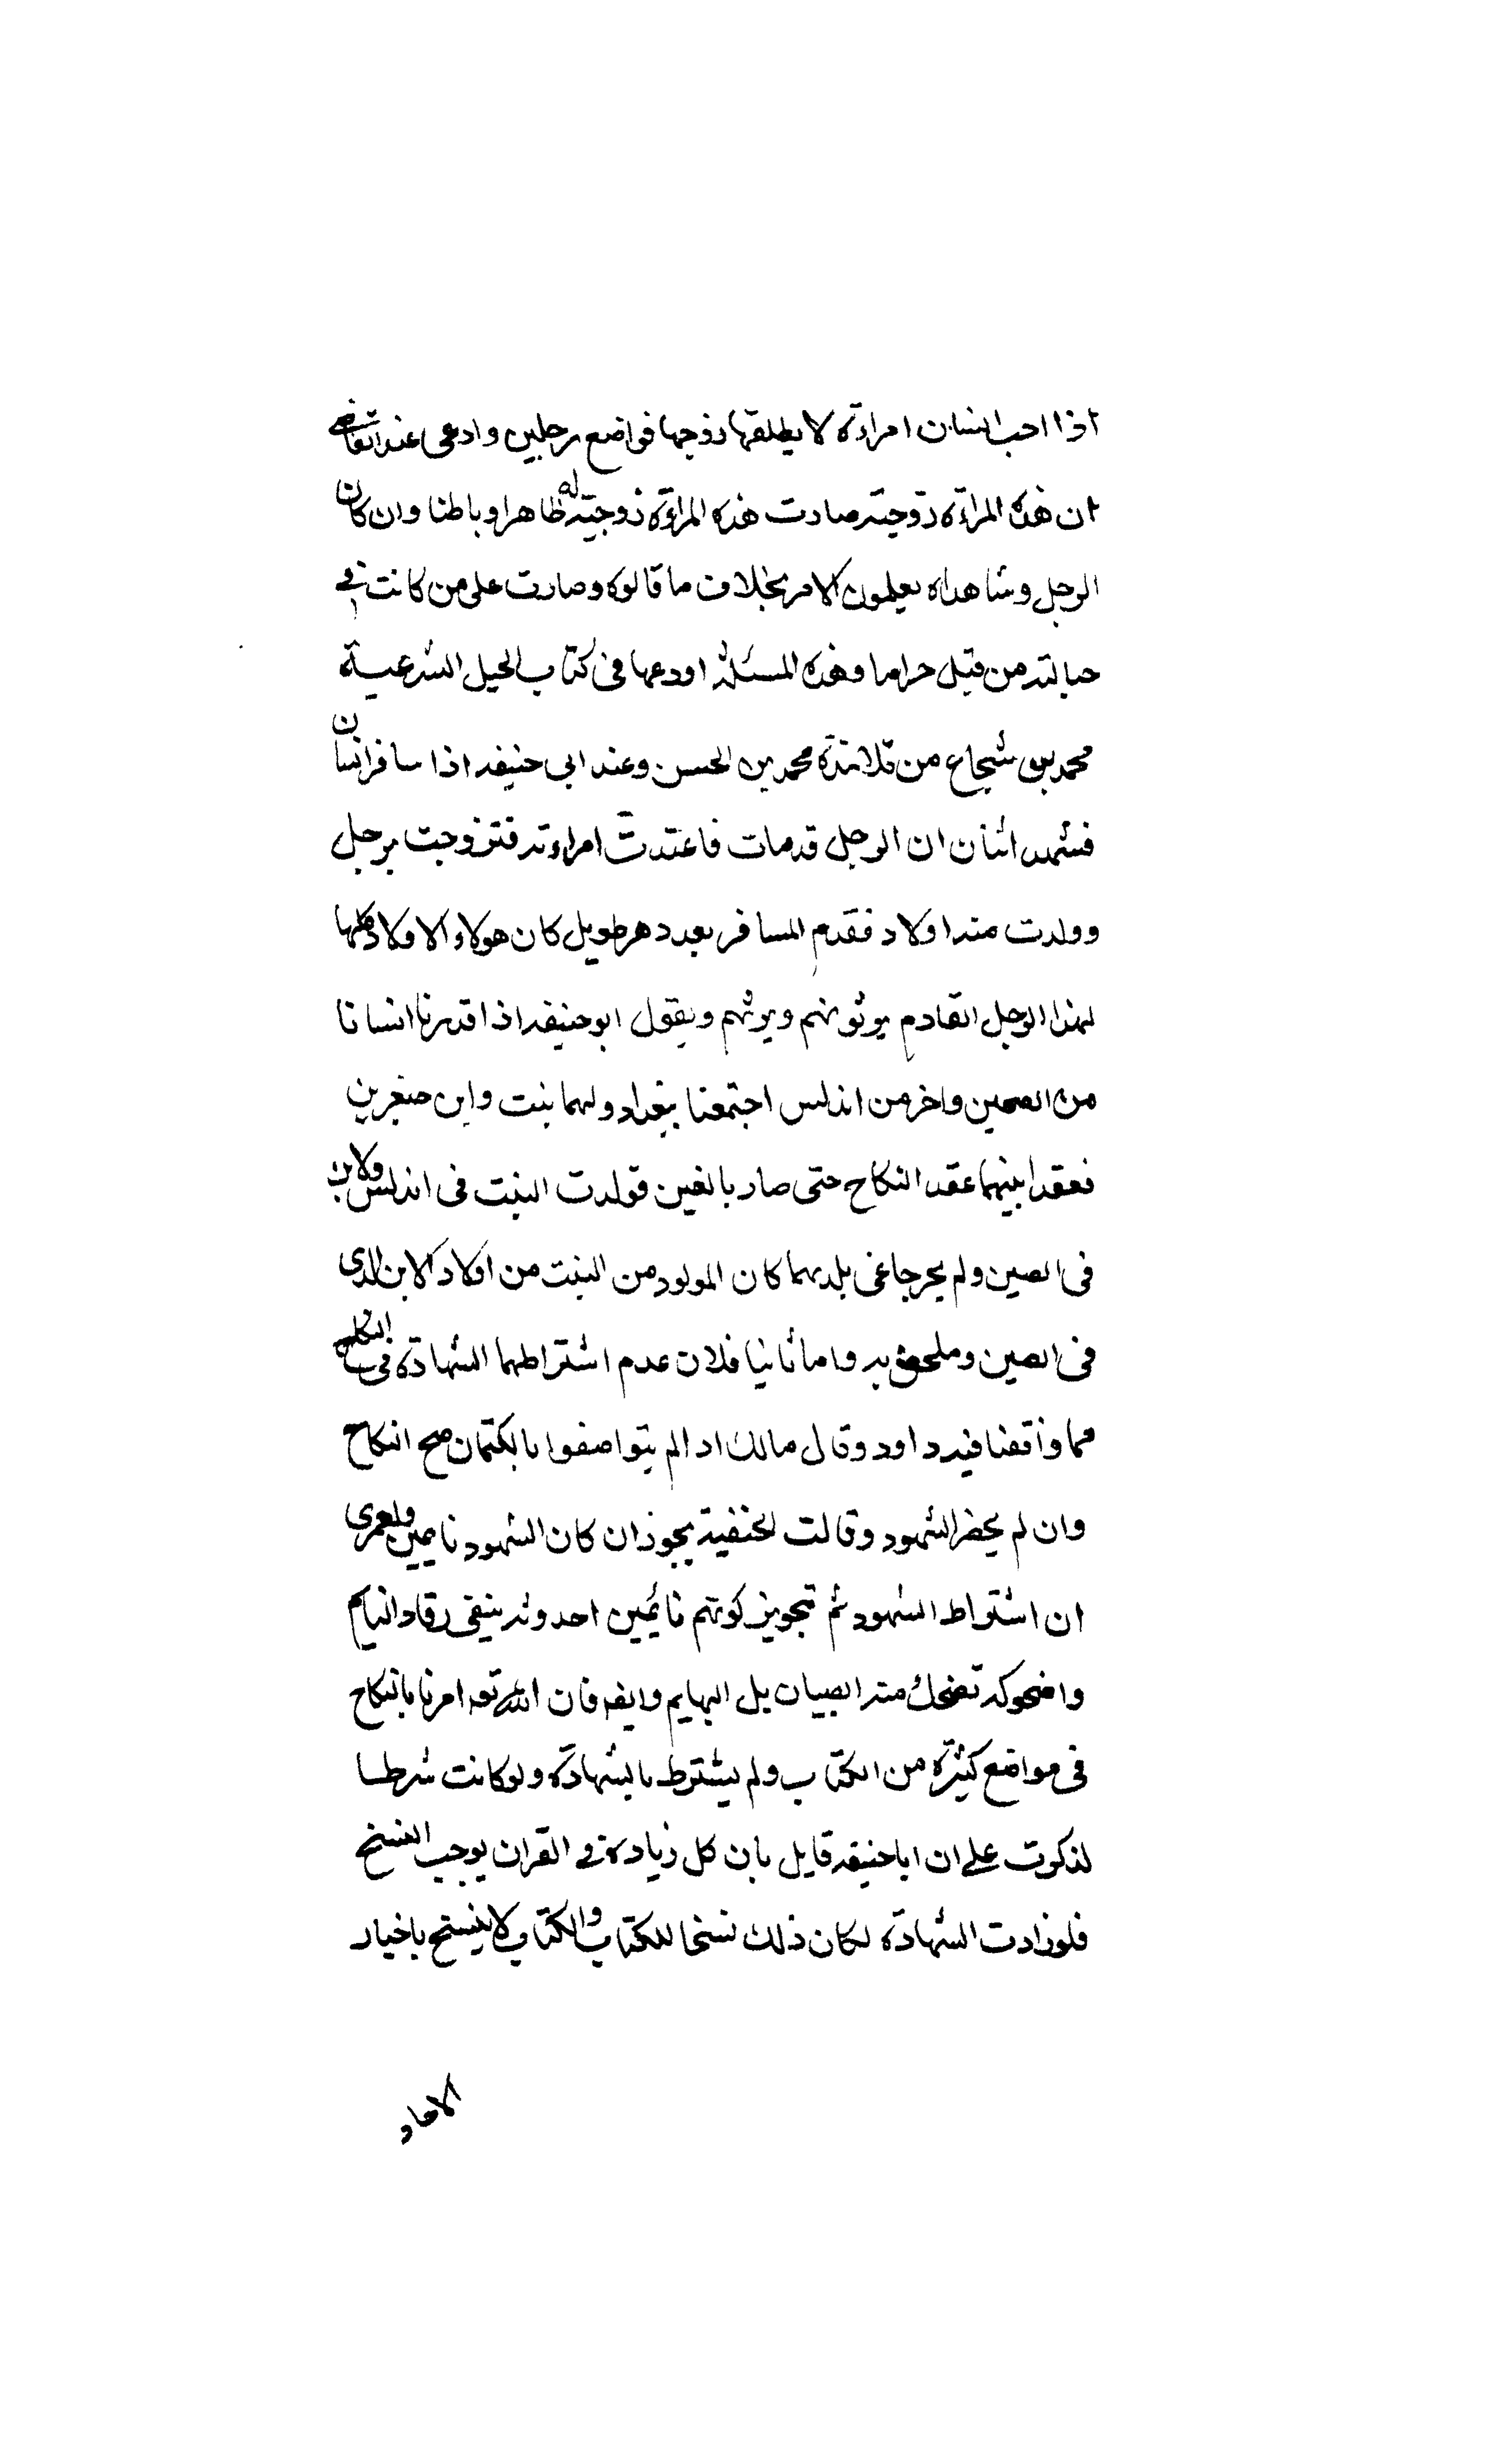 اذا احب انسان امراءة لا يطلقها زوجها فواضع رجلين وادعى عند القاضي
ان هذه المراءة زوجته صارت هذه المراءة زوجته له ظاهرا وباطنا وان كان
الرجل وشاهداه يعلمون الامر بخلاف ما قالوه وصارت على من كانت في
حبالته من قبل حراما وهذه المسئلة اودعها في كتاب الحيل الشرعية
محمد بن شجاع من تلامذة محمد بن الحسن وعند ابي حنيفه اذا سافر انسان
فشهد اثنان ان الرجل قد مات فاعتدت امراءته فتزوجت برجل
وولدت منه اولاد فقدم المسافر بعد دهر طويل كان هولاء الاولاد كلها
لهذا الرجل القادم يرثونهم ويرثهم ويقول ابو حنيفه اذا قدرنا انسانا
من الصين واخر من اندلس اجتمعنا ببغداد ولهما بنت وابن صغيرين
فعقدا بينهما عقد النكاح حتى صار بالغين فولدت البنت في اندلس والابن
في الصين ولم يخرجا عن بلديهما كان المولود من البنت من اولاد الابن الذي
في الصين وملحق به واما ثانيا فلان عدم اشتراطهما الشهادة في النكاح
مما وافقنا فيه داود وقال مالك اذا لم يتواصفوا بالكتمان صح النكاح
وان لم يحضر الشهود وقالت الحنفية يجوز ان كان الشهود نايمين ولعمري
ان اشتراط الشهود ثم تجويز كونهم نائمين احدوثه ينبقى رقاد النيام
واضحوكه تضحك منه الصبيان بل البهايم وايضه فان الله تعه امرنا بالنكاح
في مواضع كثيرة من الكتاب ولم يشترط بالشهادة ولو كانت شرطا
لذكرت على ان ابا حنيفه قايل بان كل زيادة في القران يوجب النسخ
فلو زادت الشهادة لكان ذلك نسخا للكتاب والكتاب لا ينسخ باخبار
الاحاد